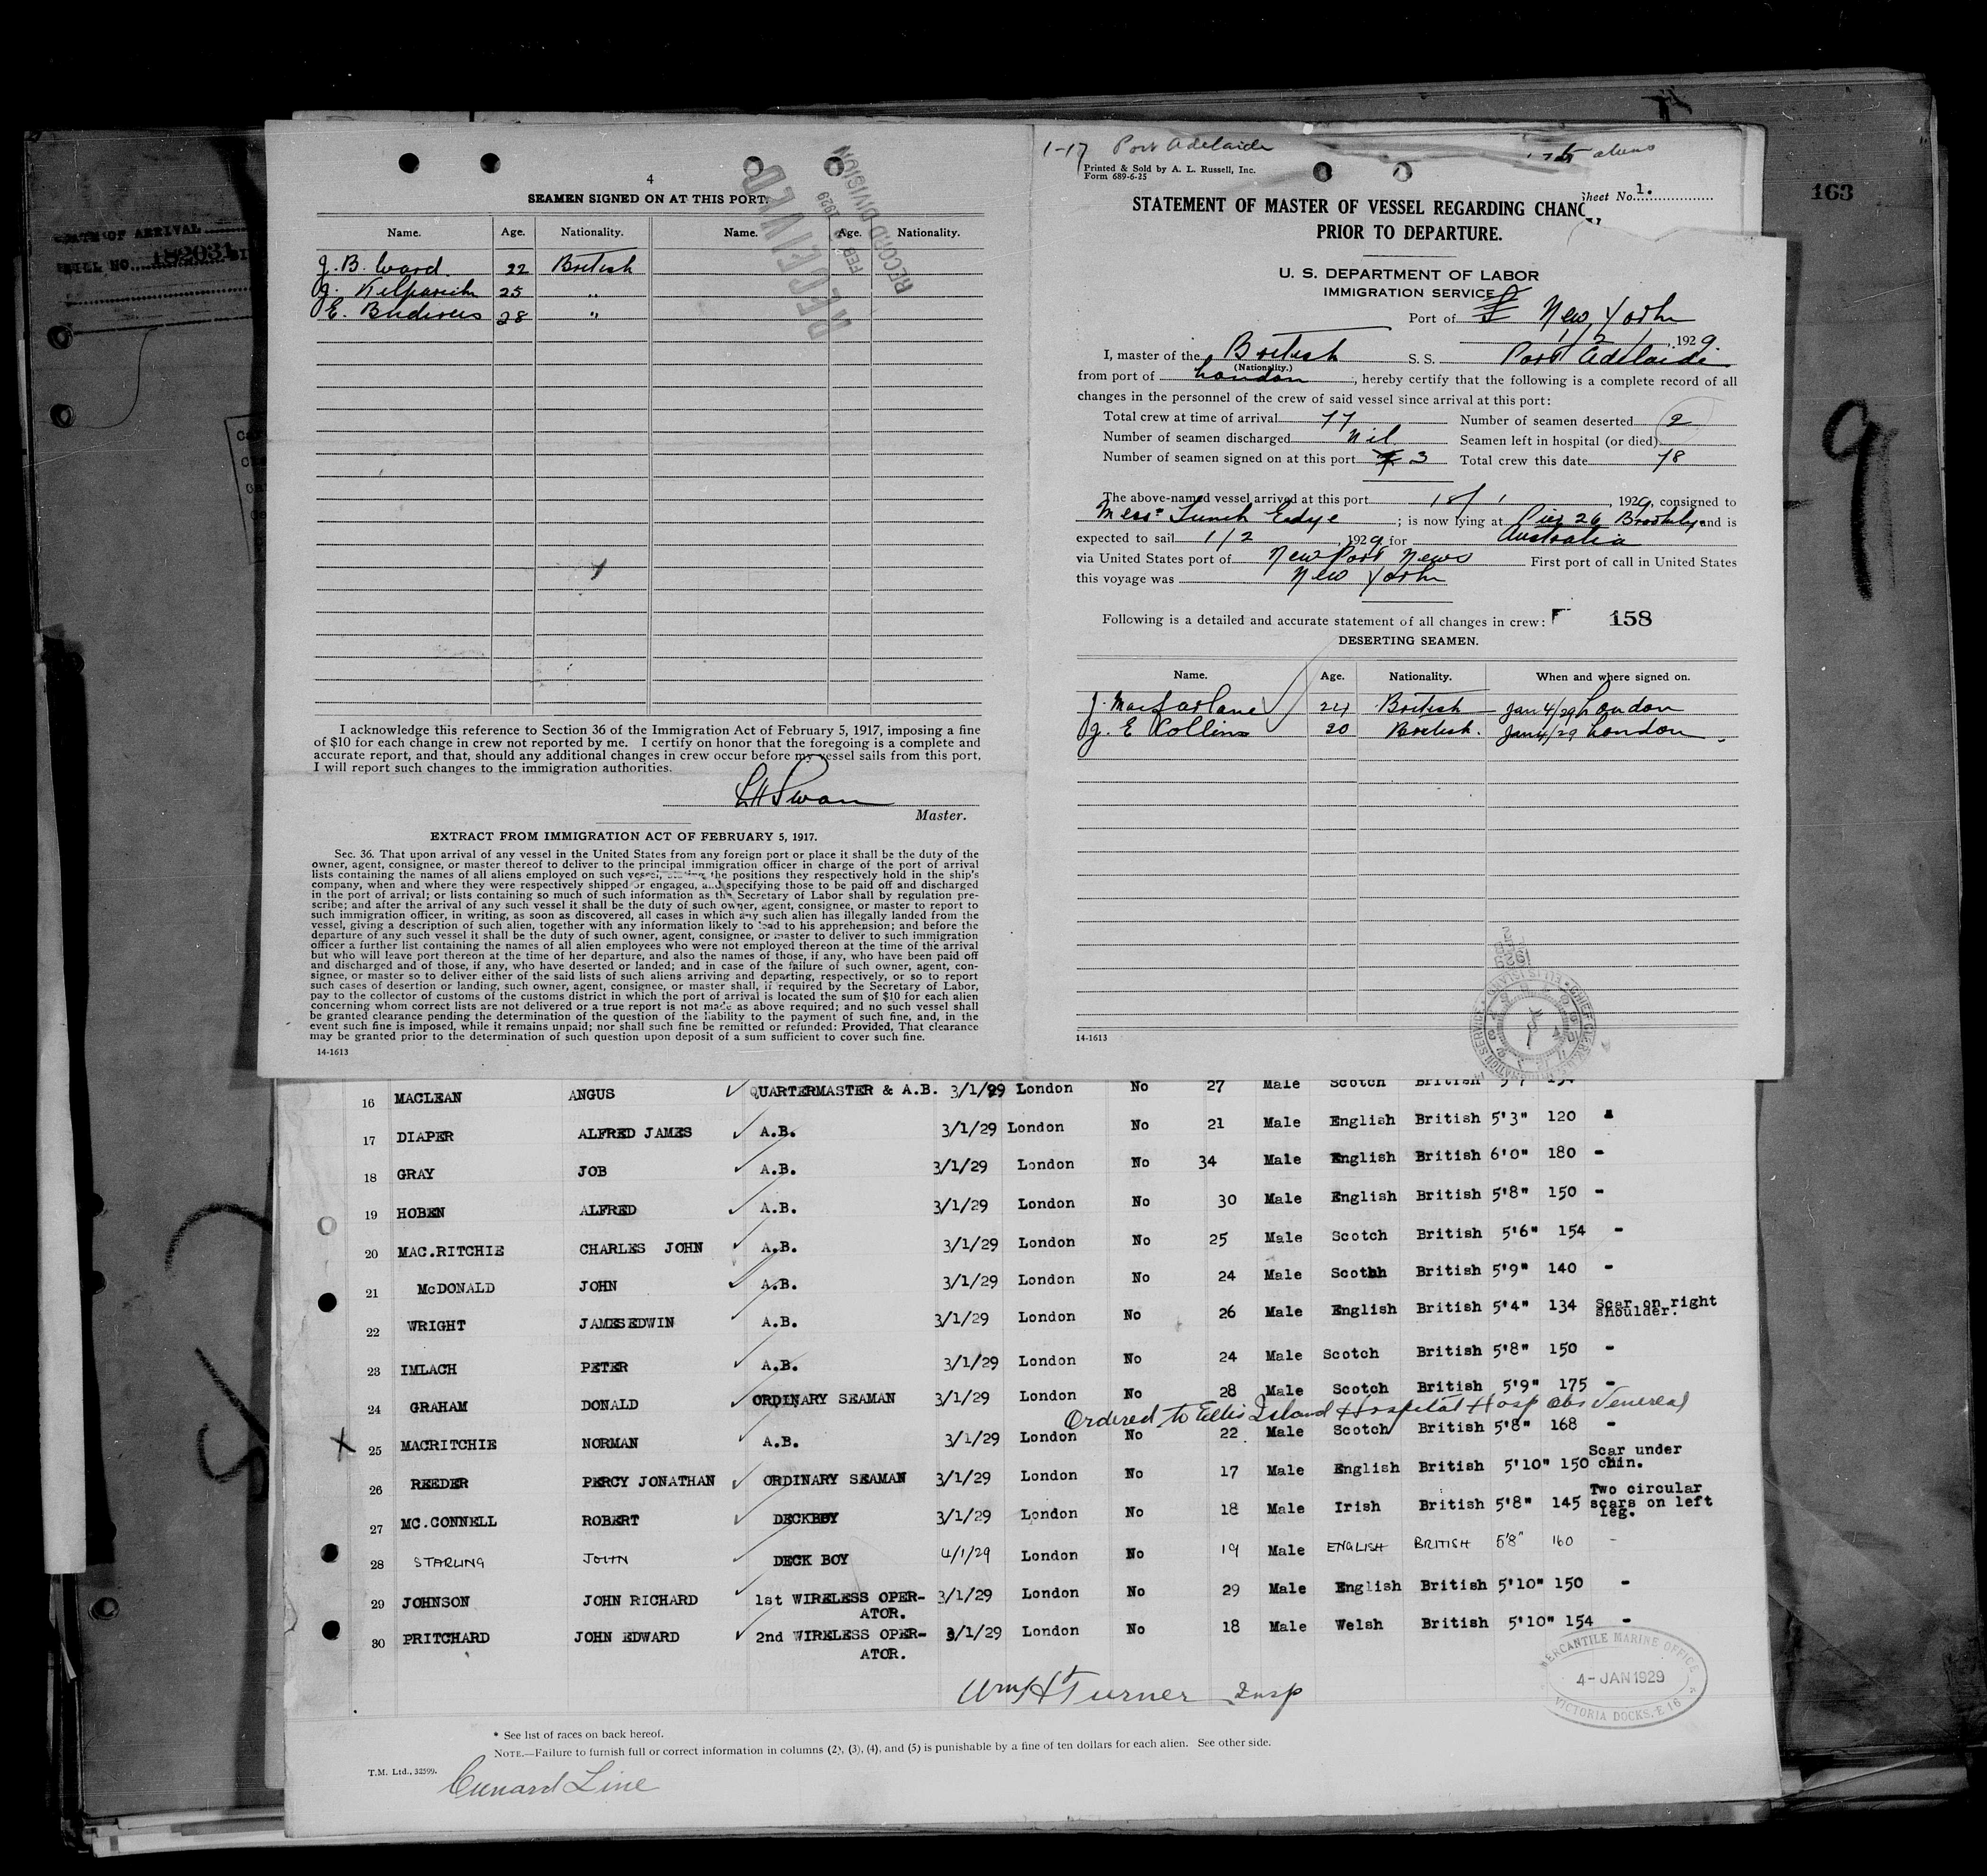 1-17 Port Adelaide
aliens
163
DATE OF ARRIVAL
4
SEAMEN SIGNED ON AT THIS PORT.
Name. Age. Nationality. Name. Age. Nationality.
J. B. Ward. 22 British
25 "
28 "
RECEIVED
FEB 1929
RECORD DIVISION
I acknowledge this reference to Section 36 of the Immigration Act of February 5, 1917, imposing a fine
of $10 for each change in crew not reported by me. I certify on honor that the foregoing is a complete and
accurate report, and that, should any additional changes in crew occur before my vessel sails from this port,
I will report such changes to the immigration authorities.
Swan
Master.
EXTRACT FROM IMMIGRATION ACT OF FEBRUARY 5, 1917.
Sec. 36. That upon arrival of any vessel in the United States from any foreign port or place it shall be the duty of the
owner, agent, consignee, or master thereof to deliver to the principal immigration officer in charge of the port of arrival
lists containing the names of all aliens employed on such vessel, stating the positions they respectively hold in the ship's
company, when and where they were respectively shipped or engaged, and specifying those to be paid off and discharged
in the port of arrival; or lists containing so much of such information as the Secretary of Labor shall by regulation pre-
scribe; and after the arrival of any such vessel it shall be the duty of such owner, agent, consignee, or master to report to
such immigration officer, in writing, as soon as discovered, all cases in which any such alien has illegally landed from the
vessel, giving a description of such alien, together with any information likely to lead to his apprehension; and before the
departure of any such vessel it shall be the duty of such owner, agent, consignee, or master to deliver to such immigration
officer a further list containing the names of all alien employees who were not employed thereon at the time of the arrival
but who will leave port thereon at the time of her departure, and also the names of those, if any, who have been paid off
and discharged and of those, if any, who have deserted or landed; and in case of the failure of such owner, agent, con-
signee, or master so to deliver either of the said lists of such aliens arriving and departing, respectively, or so to report
such cases of desertion or landing, such owner, agent, consignee, or master shall, if required by the Secretary of Labor,
pay to the collector of customs of the customs district in which the port of arrival is located the sum of $10 for each alien
concerning whom correct lists are not delivered or a true report is not made as above required; and no such vessel shall
be granted clearance pending the determination of the question of the liability to the payment of such fine, and, in the
event such fine is imposed, while it remains unpaid; nor shall such fine be remitted or refunded: Provided, That clearance
may be granted prior to the determination of such question upon deposit of a sum sufficient to cover such fine.
14-1613
Printed & Sold by A. L. Russell, Inc.
Form 689-6-25
Sheet No. 1.
STATEMENT OF MASTER OF VESSEL REGARDING CHANG
PRIOR TO DEPARTURE.
U. S. DEPARTMENT OF LABOR
IMMIGRATION SERVICE
Port of New York
1/2/, 1929.
I, master of the British S. S. Port Adelaide
(Nationality.)
from port of London, hereby certify that the following is a complete record of all
changes in the personnel of the crew of said vessel since arrival at this port:
Total crew at time of arrival 77 Number of seamen deserted 2
Number of seamen discharged Nil Seamen left in hospital (or died)
Number of seamen signed on at this port 3 Total crew this date 78
The above-named vessel arrived at this port 18/1, 1929, consigned to
Messrs ; is now lying at Pier 26 Brooklyn and is
expected to sail 1/2, 1929 for Australia
via United States port of New Port News First port of call in United States
this voyage was New York
Following is a detailed and accurate statement of all changes in crew: 158
DESERTING SEAMEN.
Name. Age. Nationality. When and where signed on.
J. MacFarlane 24 British Jan 4/29 London
J. E Collins 20 British. Jan 4/29 London
14-1613
9
16 MACLEAN ANGUS QUARTERMASTER & A.B. 3/1/29 London No 27 Male Scotch British 5'7" 154
17 DIAPER ALFRED JAMES A.B. 3/1/29 London No 21 Male English British 5'3" 120 -
18 GRAY JOB A.B. 3/1/29 London No 34 Male English British 6'0" 180 -
19 HOBEN ALFRED A.B. 3/1/29 London No 30 Male English British 5'8" 150 -
20 MAC.RITCHIE CHARLES JOHN A.B. 3/1/29 London No 25 Male Scotch British 5'6" 154 -
21 McDONALD JOHN A.B. 3/1/29 London No 24 Male Scothh British 5'9" 140 -
22 WRIGHT JAMES EDWIN A.B. 3/1/29 London No 26 Male English British 5'4" 134 Scar on right shoulder.
23 IMLACH PETER A.B. 3/1/29 London No 24 Male Scotch British 5'8" 150 -
24 GRAHAM DONALD ORDINARY SEAMAN 3/1/29 London No 28 Male Scotch British 5'9" 175 -
Ordered to Ellis Island Hospital Hosp obs Venereal
X 25 MACRITCHIE NORMAN A.B. 3/1/29 London No 22 Male Scotch British 5'8" 168 -
26 REEDER PERCY JONATHAN ORDINARY SEAMAN 3/1/29 London No 17 Male English British 5'10" 150 Scar under chin.
27 MC.CONNELL ROBERT DECKBOY 3/1/29 London No 18 Male Irish British 5'8" 145 Two circular scars on left leg.
28 STARLING JOHN DECK BOY 4/1/29 London No 19 Male ENGLISH BRITISH 5'8" 160 -
29 JOHNSON JOHN RICHARD 1st WIRELESS OPER-ATOR. 3/1/29 London No 29 Male English British 5'10" 150 -
30 PRITCHARD JOHN EDWARD 2nd WIRELESS OPER-ATOR. 3/1/29 London No 18 Male Welsh British 5'10" 154 -
Wm H Turner Insp
MERCANTILE MARINE OFFICE
4-JAN 1929
VICTORIA DOCKS, E 16
* See list of races on back hereof.
NOTE.—Failure to furnish full or correct information in columns (2), (3), (4), and (5) is punishable by a fine of ten dollars for each alien. See other side.
T.M. Ltd., 32599.
Cunard Line